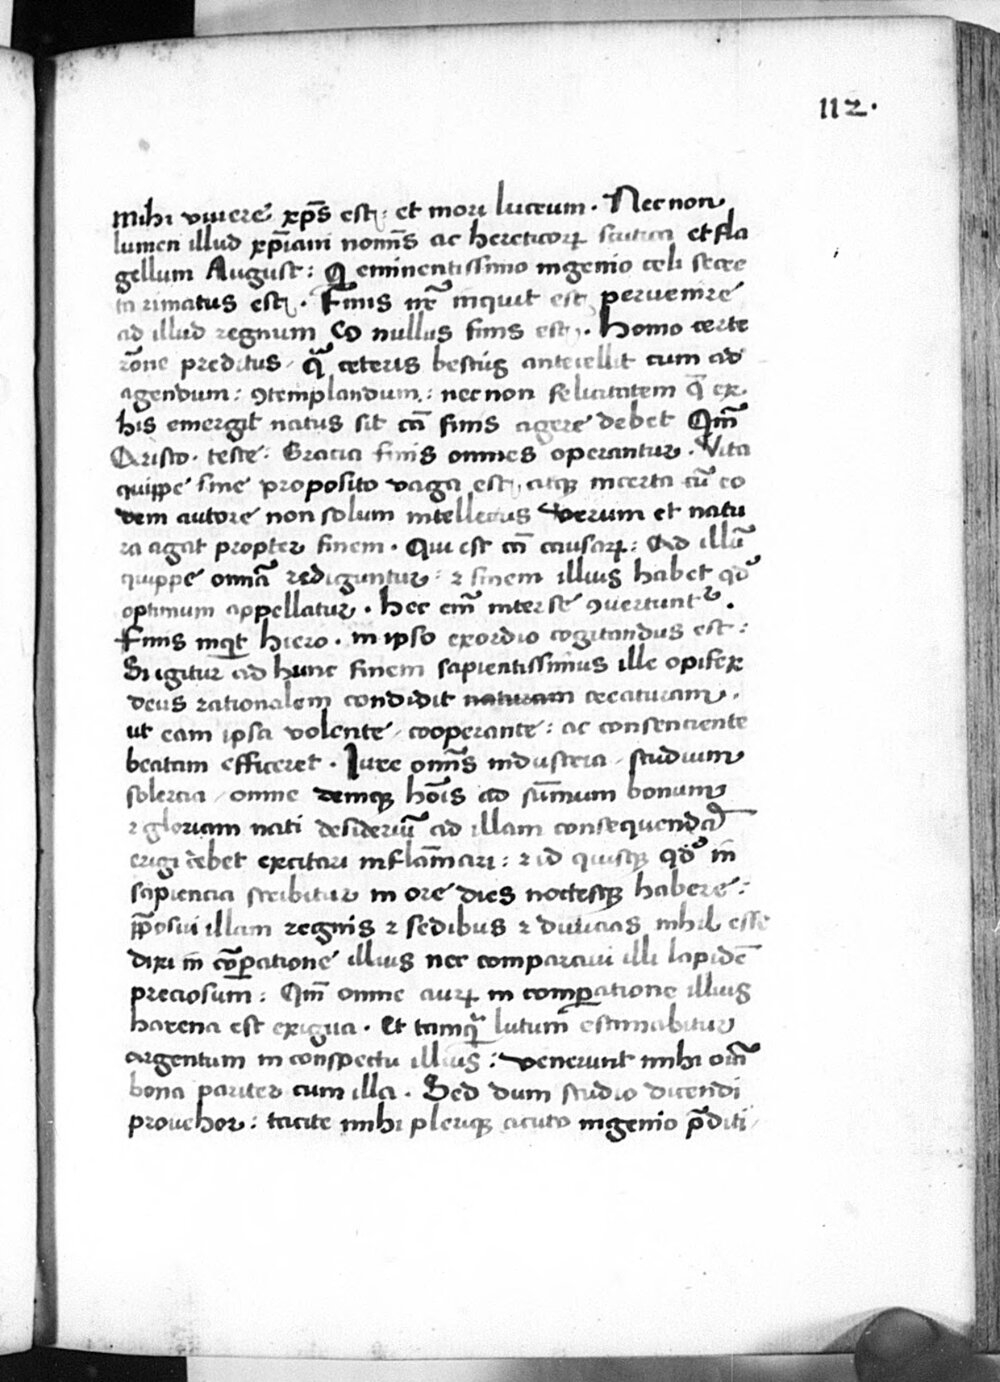 112.
mihi viuere xp̄s est: et mori lucrum. Nec non
lumen illud xp̄iani nomīs ac hereticoꝝ scutica et fla
gellum August: Q eminentissimo ingenio celi secre
ta rimatus est. Finis nr̄ inquit est peruenire
ad illud regnum Cō nullus finis est. Homo certe
rōne preditus, q̄ ceteris bestijs antecellit cum ad
agendum: ꝯtemplandum: nec non felicitatem q̄ ex
his emergit natus sit cā finis agere debet Qm̄
Aristo. teste: Gracia finis omnes operantur. Vita
quippe sine proposito vaga est, atqꝫ incerta cū eo
dem autore non solum intellectus Verum et natu
ra agat propter finem. Qui est cā causaꝝ: Ad illū
quippe omnā rediguntur: ⁊ sinem illius habet qd̾
optimum appellatur. Hec em̄ inter se ꝯuertuntᷣ.
Finis inqt Hiero. in ipso exordio cogitandus est:
Si igitur ad hunc finem sapientissimus ille opifex
deus rationalem condidit naturam creaturam,
ut eam ipsa volente, cooperante: ac consenciente
beatam efficeret. Iure omīs industria, studium
solercia, omne demqꝫ hōis ad sūmum bonum
⁊ gloriam nati desideriū ad illam consequendā
erigi debet excitari inflāmari: ⁊ id quisqꝫ qd̾ in
sapiencia scribitur in ore dies noctesqꝫ habere:
ꝓposui illam regnis ⁊ sedibus ⁊ diuicias nihil esse
dixi in cōpatione illius nec comparaui illi lapidē
preciosum: Qm̄ omne auꝝ in comꝑatione illius
harena est exigua. Et tamqᷓ lutum estimabitur
argentum in conspectu illius: Venerunt mihi oīa
bona pariter cum illa. Sed dum studio dicendi
prouehor: tacite mihi pleriqꝫ acuto ingenio p̄diti